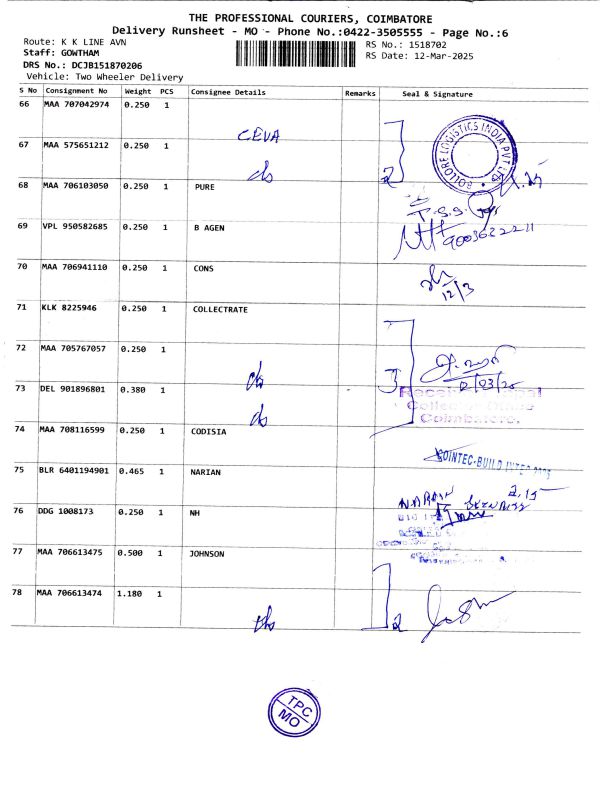 THE PROFESSIONAL COURIERS, COIMBATORE
Delivery Runsheet - MO - Phone No.:0422-3505555 - Page No.:6
Route: K K LINE AVN
RS No.: 1518702
Staff: GOWTHAM
RS Date: 12-Mar-2025
DRS No.: DCJB151870206
Vehicle: Two Wheeler Delivery
S No Consignment No Weight PCS Consignee Details Remarks Seal & Signature
66 MAA 707042974 0.250 1
CEVA
BOLLORE LOGISTICS INDIA PVT LTD
67 MAA 575651212 0.250 1
2
68 MAA 706103050 0.250 1 PURE
69 VPL 950582685 0.250 1 B AGEN
9003622211
70 MAA 706941110 0.250 1 CONS
12/3
71 KLK 8225946 0.250 1 COLLECTRATE
72 MAA 705767057 0.250 1
3
73 DEL 901896801 0.380 1
Coimbatore.
74 MAA 708116599 0.250 1 CODISIA
COINTEC-BUILD INTEC
75 BLR 6401194901 0.465 1 NARIAN
76 DDG 1008173 0.250 1 NH
77 MAA 706613475 0.500 1 JOHNSON
78 MAA 706613474 1.180 1
2
TPC
MO